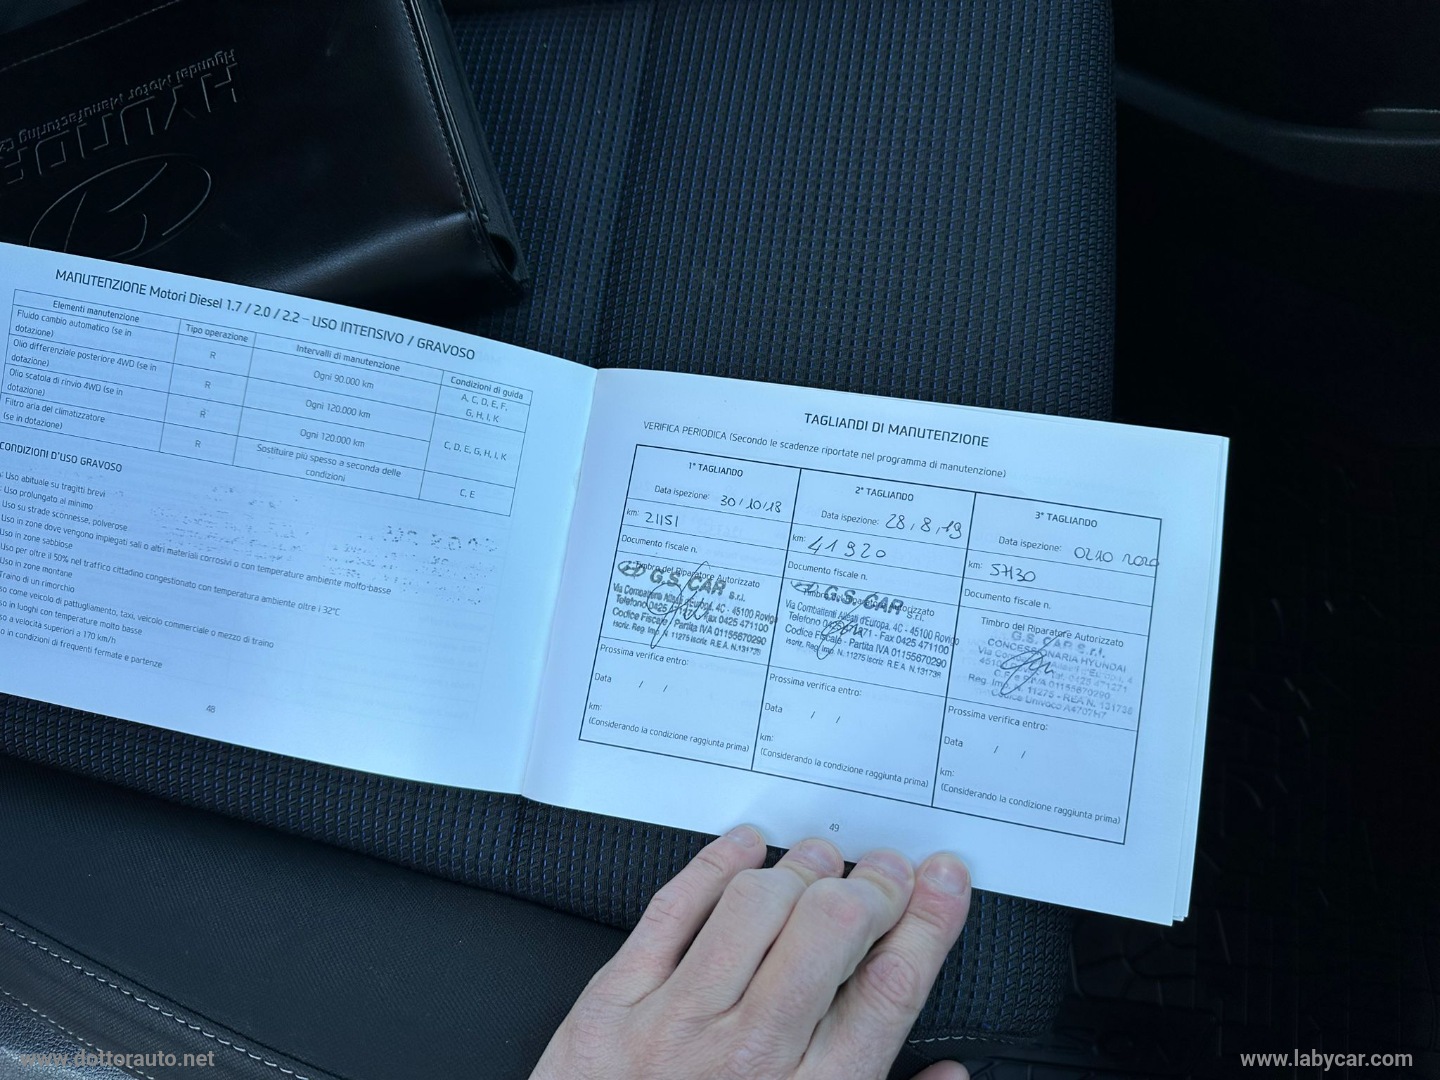 HYUNDAI
Hyundai Motor Manufacturing
MANUTENZIONE Motori Diesel 1.7 / 2.0 / 2.2 – USO INTENSIVO / GRAVOSO
Elementi manutenzione
Tipo operazione
Intervalli di manutenzione
Condizioni di guida
Fluido cambio automatico (se in
dotazione)
R
Ogni 90.000 km
A, C, D, E, F,
G, H, I, K
Olio differenziale posteriore 4WD (se in
dotazione)
R
Ogni 120.000 km
C, D, E, G, H, I, K
Olio scatola di rinvio 4WD (se in
dotazione)
R
Ogni 120.000 km
Filtro aria del climatizzatore
(se in dotazione)
R
Sostituire più spesso a seconda delle
condizioni
C, E
CONDIZIONI D'USO GRAVOSO
Uso abituale su tragitti brevi
Uso prolungato al minimo
Uso su strade sconnesse, polverose
Uso in zone dove vengono impiegati sali o altri materiali corrosivi o con temperature ambiente molto basse
Uso in zone sabbiose
Uso per oltre il 50% nel traffico cittadino congestionato con temperatura ambiente oltre i 32°C
Uso in zone montane
Traino di un rimorchio
come veicolo di pattugliamento, taxi, veicolo commerciale o mezzo di traino
in luoghi con temperature molto basse
a velocità superiori a 170 km/h
in condizioni di frequenti fermate e partenze
48
TAGLIANDI DI MANUTENZIONE
VERIFICA PERIODICA (Secondo le scadenze riportate nel programma di manutenzione)
1° TAGLIANDO
Data ispezione: 30/10/18
km: 21151
Documento fiscale n.
Timbro del Riparatore Autorizzato
G.S. CAR S.r.l.
Via Combattenti Alleati d'Europa, 4C - 45100 Rovigo
Telefono 0425 471271 - Fax 0425 471100
Codice Fiscale - Partita IVA 01155670290
Iscriz. Reg. Imp. N. 11275 Iscriz. R.E.A. N.131738
Prossima verifica entro:
Data / /
km:
(Considerando la condizione raggiunta prima)
2° TAGLIANDO
Data ispezione: 28,8,19
km: 41920
Documento fiscale n.
Timbro del Riparatore Autorizzato
G.S. CAR S.r.l.
Via Combattenti Alleati d'Europa, 4C - 45100 Rovigo
Telefono 0425 471271 - Fax 0425 471100
Codice Fiscale - Partita IVA 01155670290
Iscriz. Reg. Imp. N. 11275 Iscriz. R.E.A. N.131738
Prossima verifica entro:
Data / /
km:
(Considerando la condizione raggiunta prima)
3° TAGLIANDO
Data ispezione: 0210 2020
km: 57130
Documento fiscale n.
Timbro del Riparatore Autorizzato
G.S. CAR S.r.l.
CONCESSIONARIA HYUNDAI
Reg. Imp. N. 11275 - REA N. 131738
Codice Univoco A4707H7
Prossima verifica entro:
Data / /
km:
(Considerando la condizione raggiunta prima)
49
www.dottorauto.net
www.labycar.com